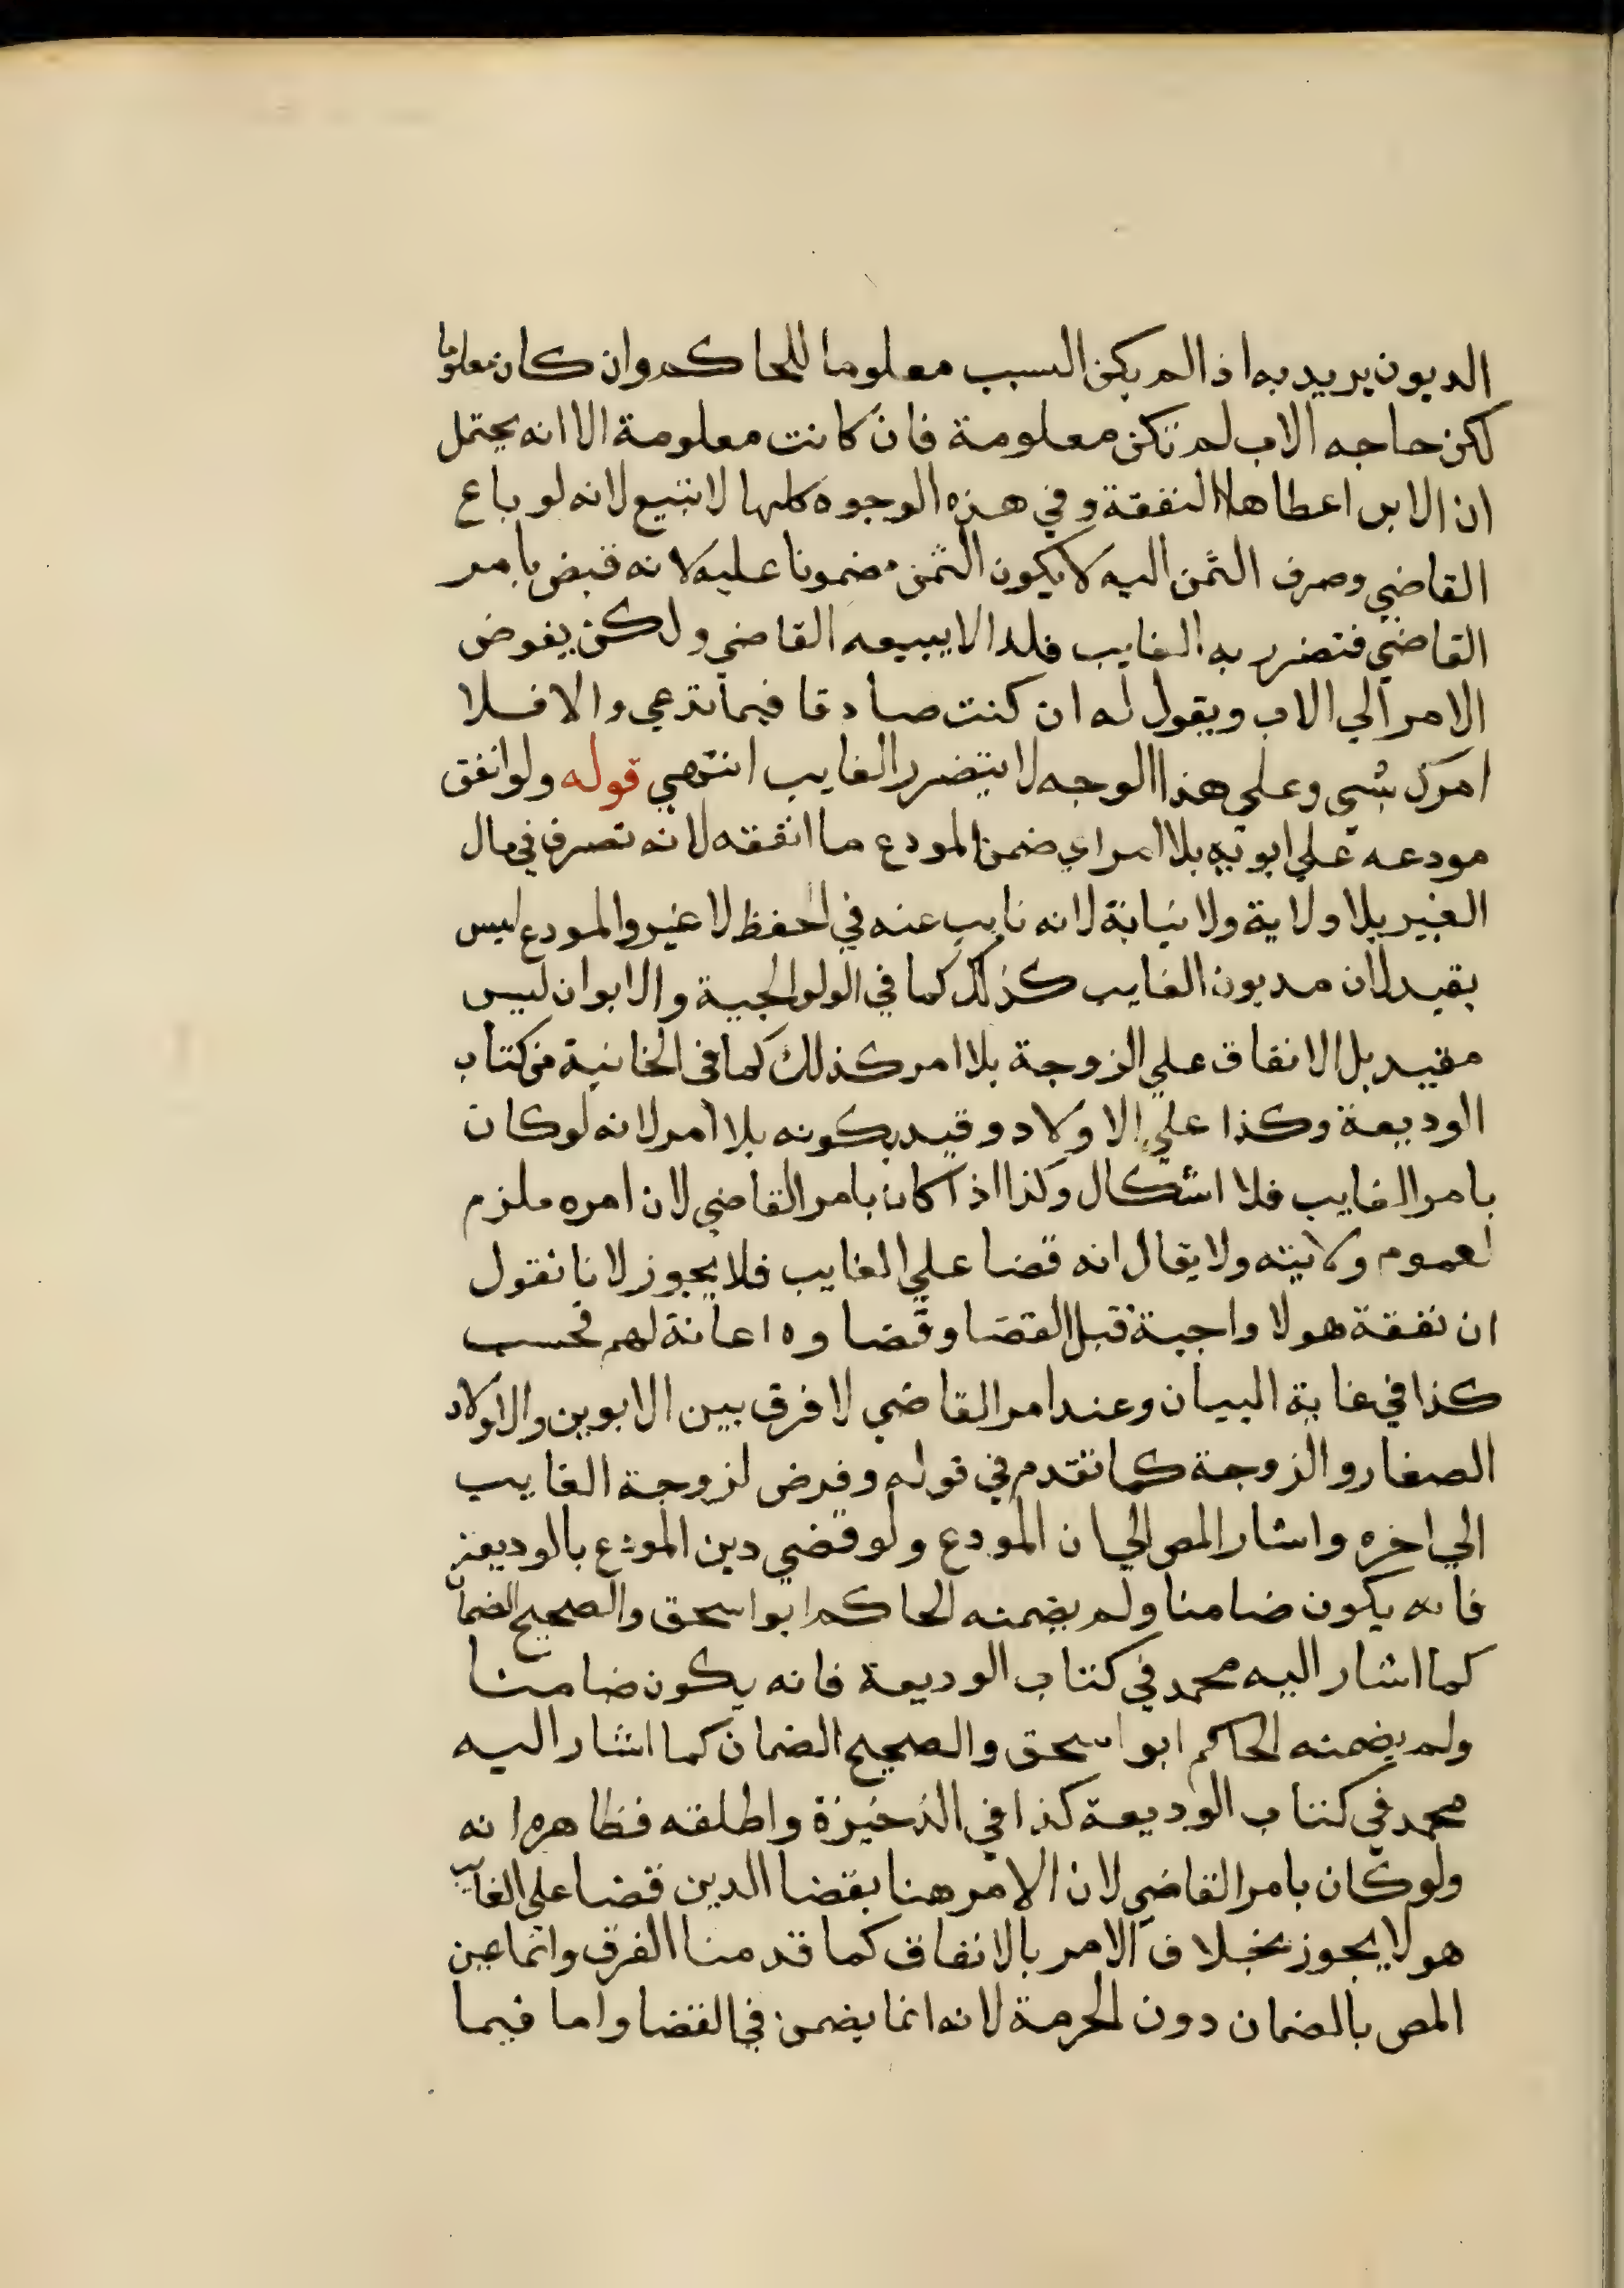 الديون يريد به اذا لم يكن السبب معلوما للحاكم وان كان معلوما
لكن حاجه الاب لم تكن معلومة فان كانت معلومة الا انه يحتمل
ان الابن اعطاهلا النفقة وفي هذه الوجوه كلها لا تبيع لانه لو باع
القاضي وصرف الثمن اليه لا يكون الثمن مضمونا عليه لانه قبض بامر
القاضي فتضرر به الغايب فلدا لا يبيعه القاضي ولكن يفوض
الامر الي الاب ويقول له ان كنت صادقا فيما تدعي والا فلا
امرك بشي وعلي هذا الوجه لا يتضرر الغايب انتهي قوله ولو انفق
مودعه علي ابويه بلا امر اي ضمن المودع ما انفقه لانه تصرف في مال
الغير بلا ولاية ولا نيابة لانه نايب عنه في الحفظ لا غير والمودع ليس
بقيد لان مديون الغايب كذلك كما في الولوالجية والابوان ليس
مقيد بل الانفاق علي الزوجة بلا امر كذلك كما في الخانية من كتاب
الوديعة وكذا علي الاولاد وقيد بكونه بلا امر لانه لو كان
بامر الغايب فلا اشكال وكذا اذا كان بامر القاضي لان امره ملزم
لعموم ولايته ولا يقال انه قضا علي الغايب فلا يجوز لانا نقول
ان نفقة هولا واجبة قبل القضا وقضاوه اعانة لهم فحسب
كذا في غاية البيان وعند امر القاضي لا فرق بين الابوين والاولاد
الصغار والزوجة كما تقدم في قوله وفرض لزوجة الغايب
الي اخره واشار المص الي ان المودع ولو قضي دين المودع بالوديعة
فانه يكون ضامنا ولم يضمنه الحاكم ابو اسحق والصحيح الضمان
كما اشار اليه محمد في كتاب الوديعة فانه يكون ضامنا
ولم يضمنه الحاكم ابو اسحق والصحيح الضمان كما اشار اليه
محمد في كتاب الوديعة كذا في الذخيرة واطلقه فظاهره انه
ولو كان بامر القاضي لان الامر هنا بقضا الدين قضا علي الغايب
هو لا يجوز بخلاف الامر بالانفاق كما قدمنا الفرق وانما عبن
المص بالضمان دون الحرمة لانه انما يضمن في القضا واما فيما